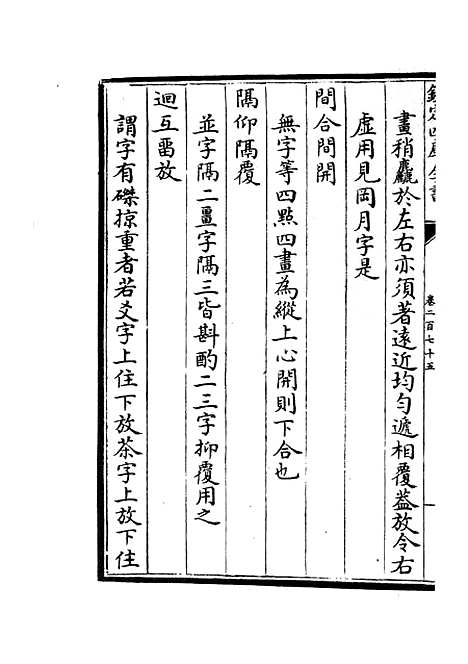 欽定四庫全書
卷二百七十五
畫稍麤於左右亦須著遠近均勻遞相覆蓋放令右
虛用見岡月字是
間合間開
無字等四點四畫為縱上心開則下合也
隔仰隔覆
並字隔二畺字隔三皆斟酌二三字抑覆用之
迴互留放
謂字有磔掠重者若爻字上住下放茶字上放下住